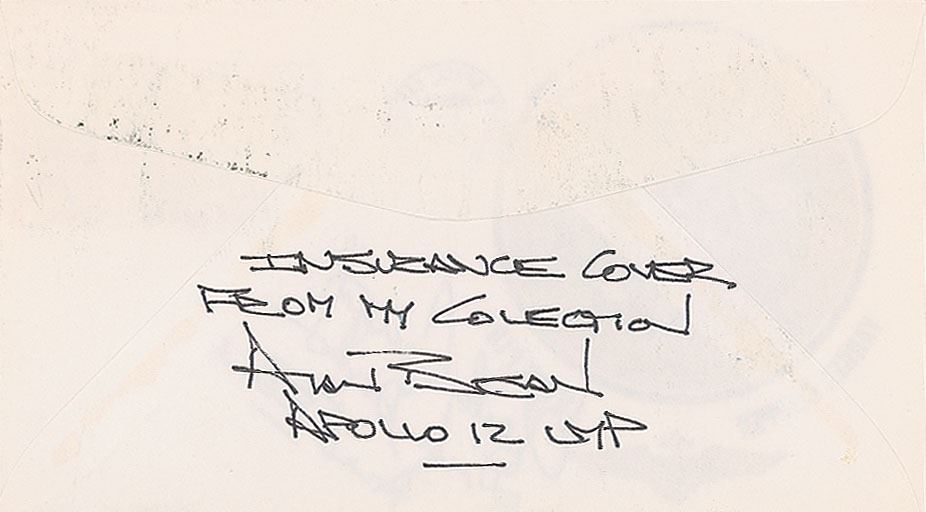 INSURANCE COVER
FROM MY COLECTION
Alan Bean
APOLLO 12 LMP